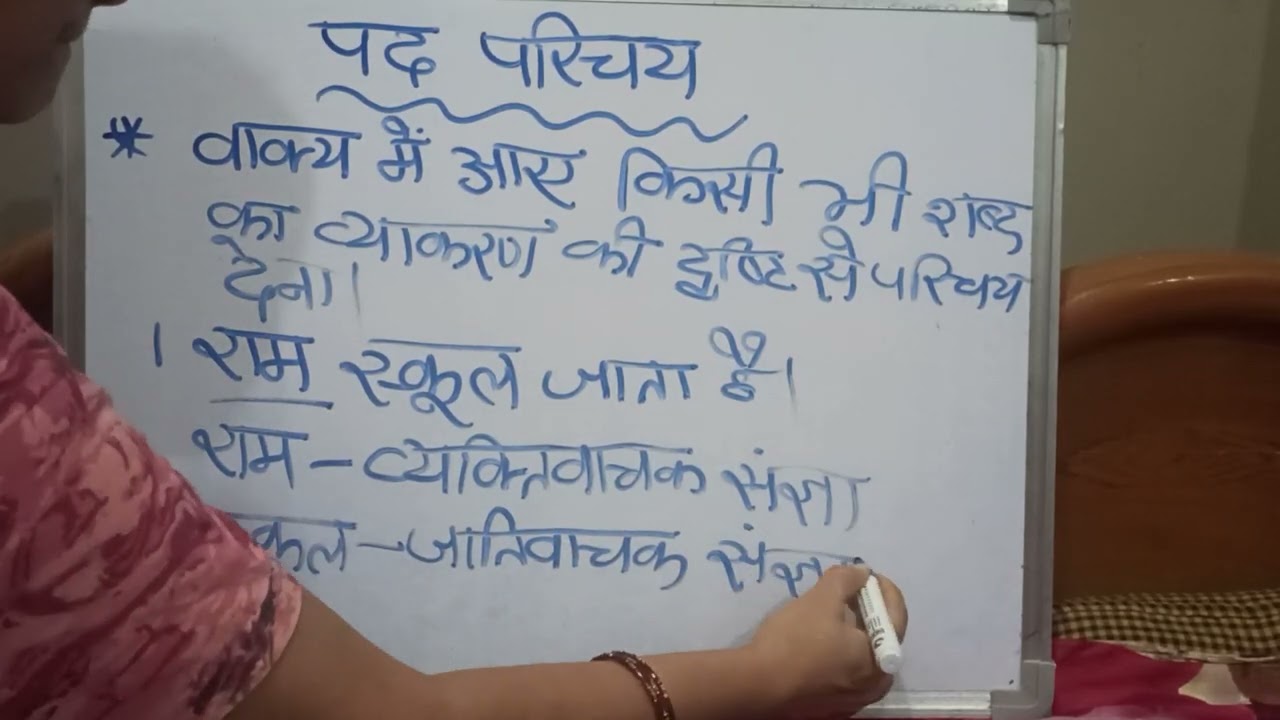 पद परिचय
* वाक्य में आए किसी भी शब्द
का व्याकरण की दृष्टि से परिचय
देना।
। राम स्कूल जाता है।
राम - व्यक्तिवाचक संज्ञा
स्कूल - जातिवाचक संज्ञा